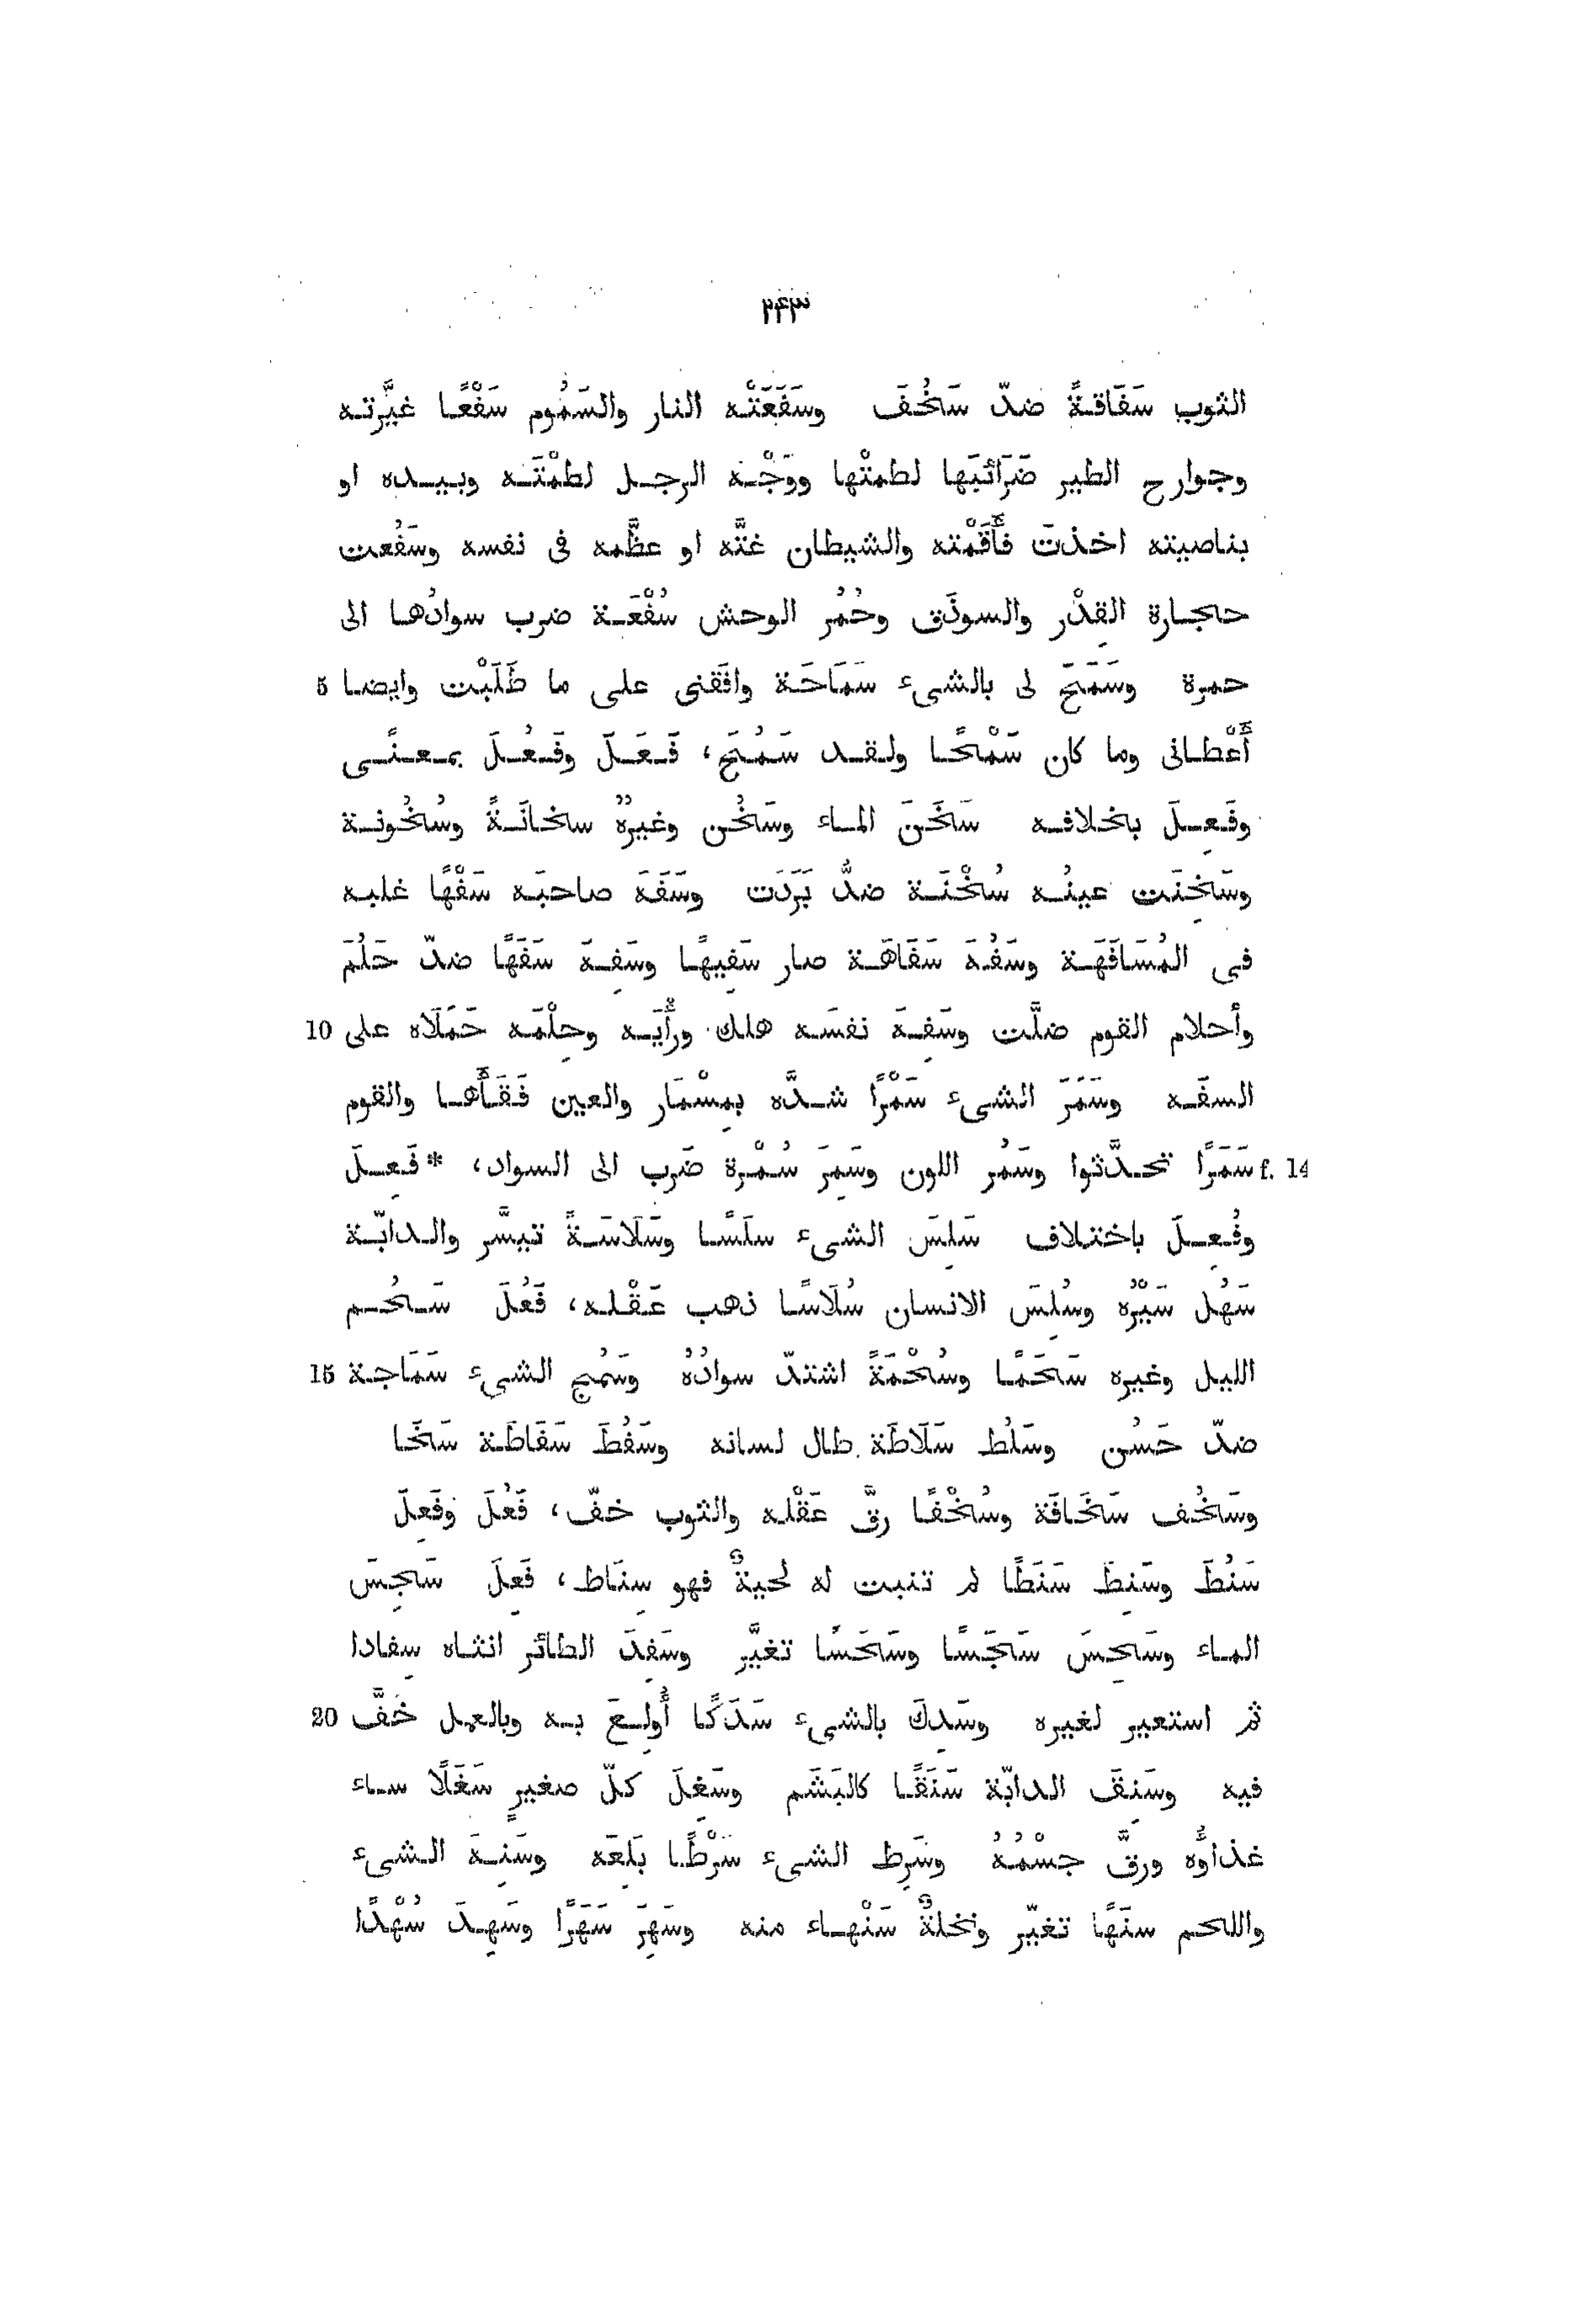 ٢٤٣
الثوب سَفَاقةً ضدّ سَخُفَ وسَفَعَتْه النار والسَمُوم سَفْعًا غيَّرته
وجوارح الطير ضَرَائبَها لطمتْها ووَجْه الرجل لطمْتَه وبيده او
بناصيته اخذتَ فأَقَمْته والشيطان غتَّه او عظَّمه فى نفسه وسَفُعت
حجارة القِدْر والسوذَق وحُمُر الوحش سُفْعَة ضرب سوادُها الى
حمرة وسَمَحَ لى بالشىء سَمَاحَة وافَقنى على ما طَلَبْت وايضا 5
أَعْطانى وما كان سَمْحًا ولقد سَمُحَ، فَعَلَ وفَعُلَ بمعنًى
وفَعِلَ بخلافه سَخَنَ الماء وسَخُن وغيرُهُ سخانَةً وسُخُونة
وسَخِنَت عينُه سُخْنَة ضدُّ بَرَدَت وسَفَهَ صاحبَه سَفْهًا غلبه
فى المُسَافَهَة وسَفُهَ سَفَاهَة صار سَفِيهًا وسَفِهَ سَفَهًا ضدّ حَلُمَ
وأحلام القوم ضلَّت وسَفِهَ نفسَه هلك ورأْيَه وحِلْمَه حَمَلَاه على 10
السفَه وسَمَرَ الشىء سَمْرًا شدَّه بمِسْمَار والعين فَقَأَها والقوم
سَمَرًا تحدَّثوا وسَمُر اللون وسَمِرَ سُمْرة ضَرب الى السواد، *فَعِلَ f. 14
وفُعِلَ باختلاف سَلِسَ الشىء سلَسًا وسَلَاسَةً تيسَّر والدابّة
سَهُل سَيْرُه وسُلِسَ الانسان سُلَاسًا ذهب عَقْله، فَعُلَ سَحُم
الليل وغيره سَحَمًا وسُحْمَةً اشتدّ سوادُهُ وسَمُج الشىء سَمَاجة 15
ضدّ حَسُن وسَلُط سَلَاطَة طال لسانه وسَفُطَ سَفَاطَة سَخَا
وسَخُف سَخَافَة وسُخْفًا رقَّ عَقْله والثوب خفّ، فَعُلَ وفَعِلَ
سَنُطَ وسَنِطَ سَنَطًا لم تنبت له لحيةٌ فهو سِنَاط، فَعِلَ سَجِسَ
الماء وسَحِسَ سَجَسًا وسَحَسًا تغيَّر وسَفِدَ الطائر انثاه سِفادا
ثم استعير لغيره وسَدِكَ بالشىء سَدَكًا أُولِعَ به وبالعمل خَفَّ 20
فيه وسَنِقَ الدابّة سَنَقًا كالبَشَم وسَغِلَ كلّ صغيرٍ سَغَلًا ساء
غذاؤُه ورقَّ جسْمُهُ وسَرِط الشىء سَرْطًا بَلِعَه وسَنِهَ الشىء
واللحم سنَهًا تغيّر ونخلةٌ سَنْهاء منه وسَهِرَ سَهَرًا وسَهِدَ سُهْدًا